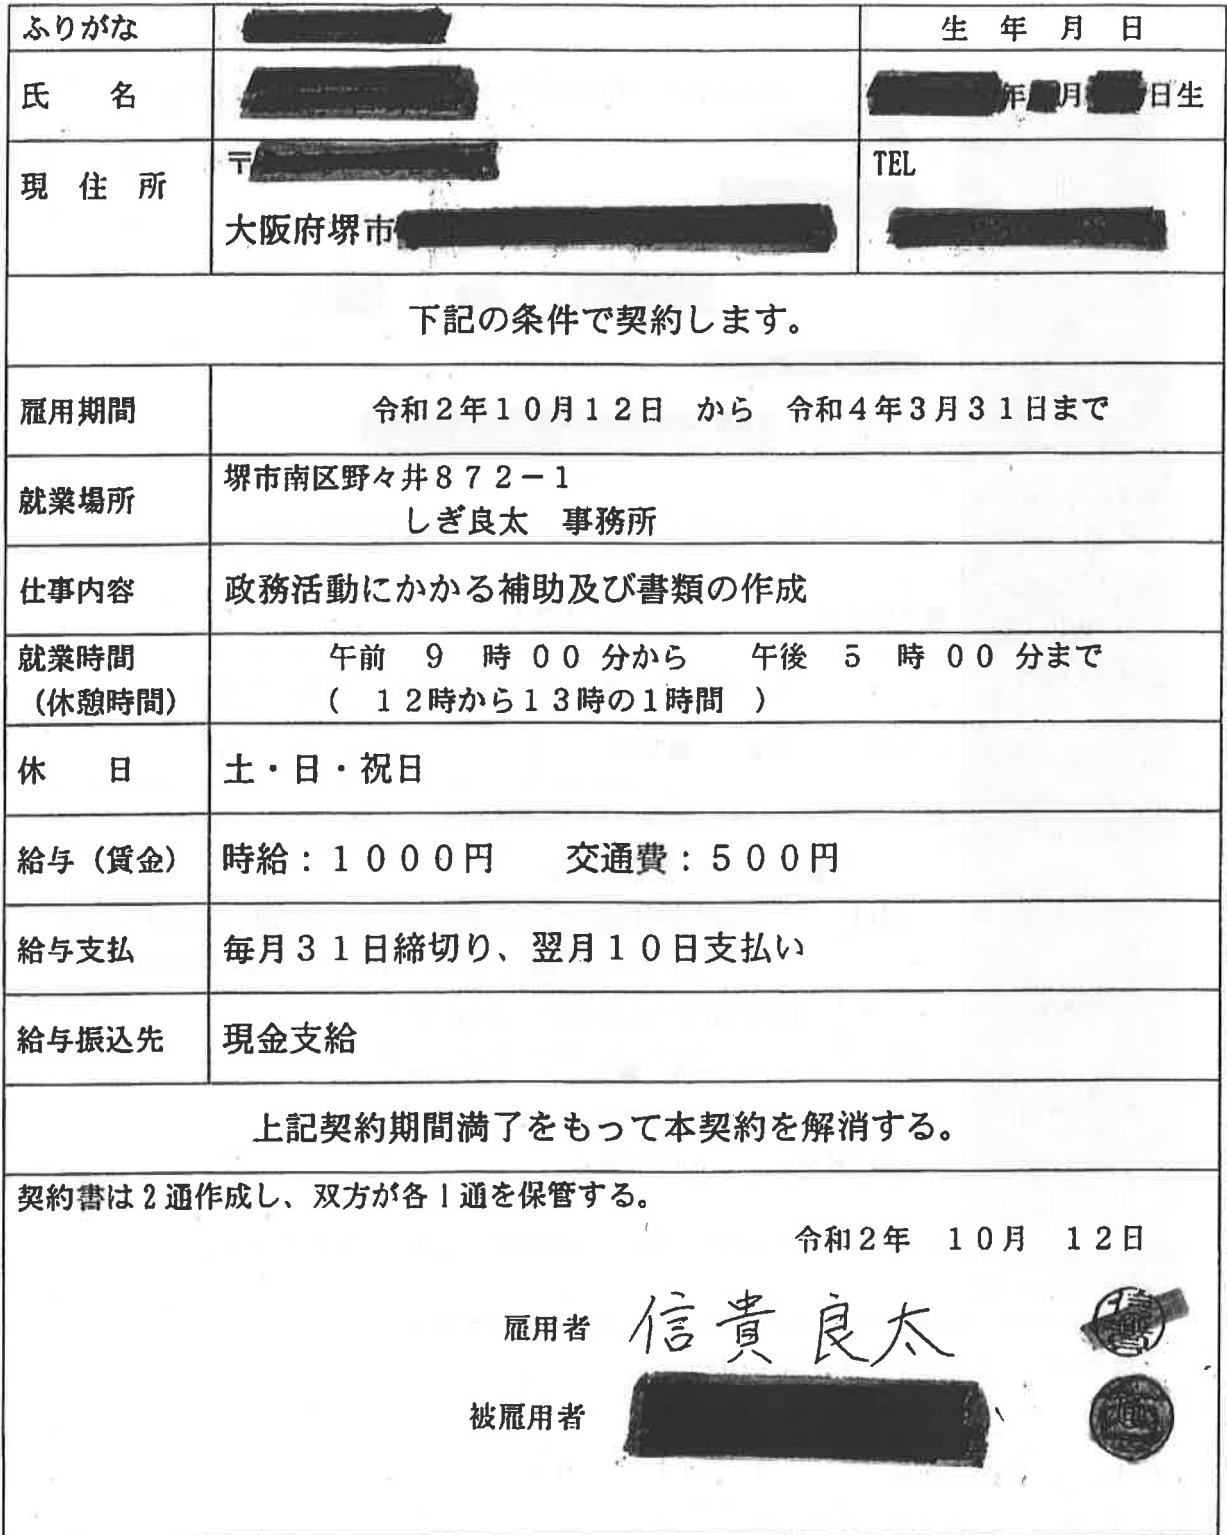 ふりがな
生　年　月　日
氏　　名
年 月 日生
現　住　所
〒
TEL
大阪府堺市
下記の条件で契約します。
雇用期間
令和２年１０月１２日　から　令和４年３月３１日まで
就業場所
堺市南区野々井８７２－１
しぎ良太　事務所
仕事内容
政務活動にかかる補助及び書類の作成
就業時間
（休憩時間）
午前　９　時　００　分から　　午後　５　時　００　分まで
（　１２時から１３時の１時間　）
休　　日
土・日・祝日
給与（賃金）
時給：１０００円　　交通費：５００円
給与支払
毎月３１日締切り、翌月１０日支払い
給与振込先
現金支給
上記契約期間満了をもって本契約を解消する。
契約書は２通作成し、双方が各１通を保管する。
令和２年　１０月　１２日
雇用者　信貴良太
被雇用者